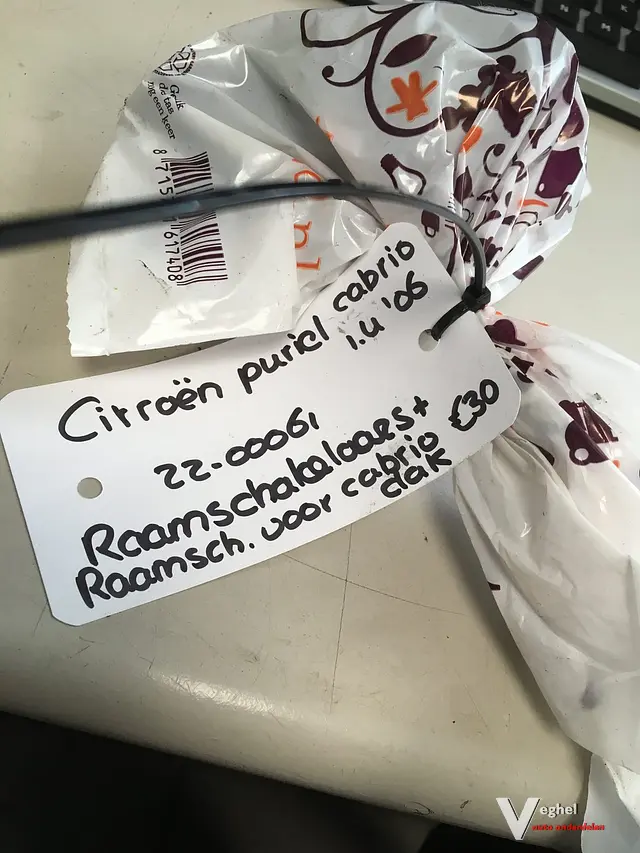 Gebruik
de tas
nog een keer
8 715 617408
Citroën puriel cabrio
1.4 '06
22-00061
€30
Raamschakelaaes+
Raamsch. voor cabrio
dak
Veghel
auto onderdelen